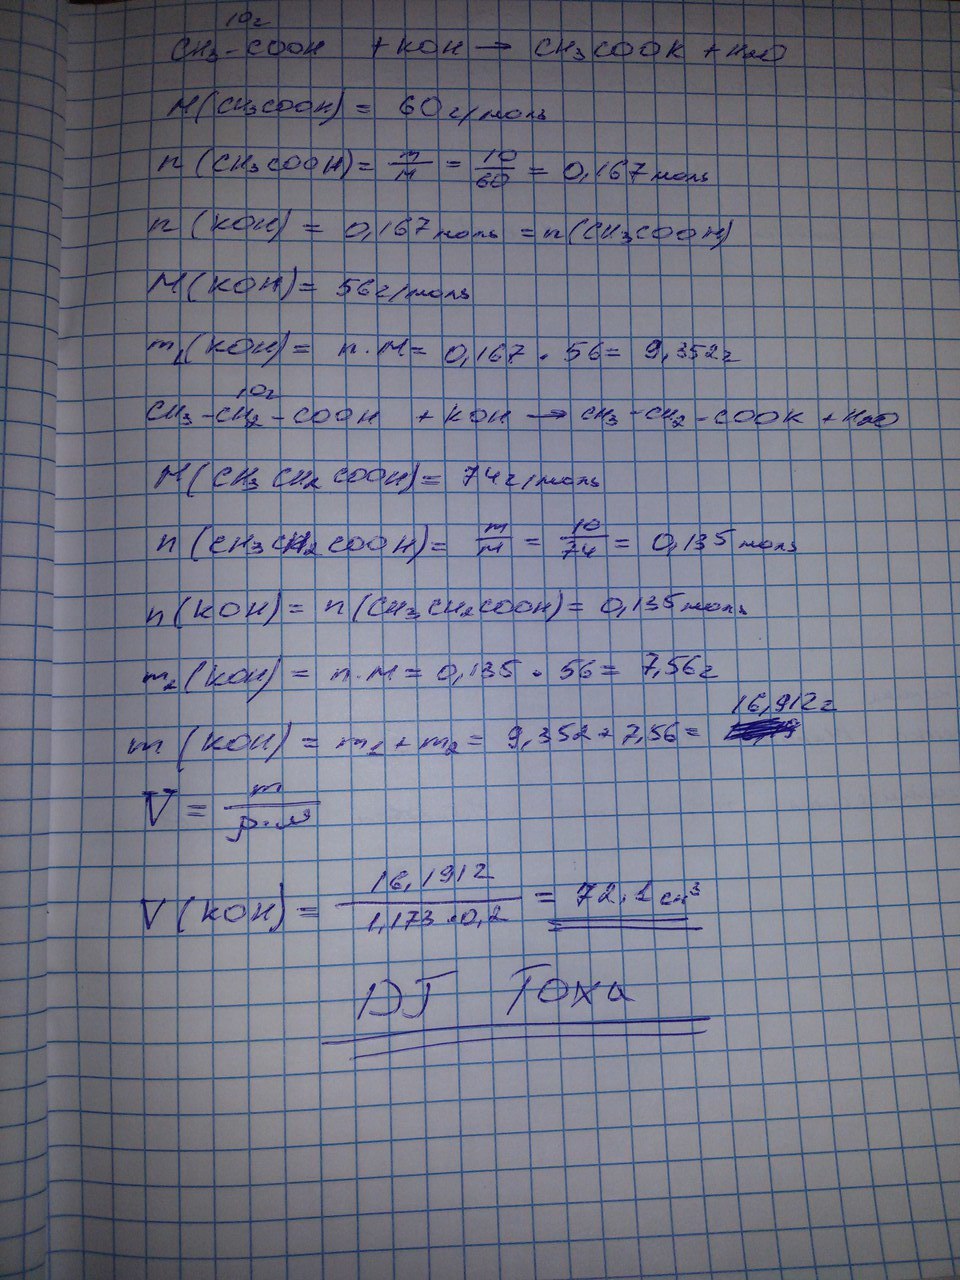 10г
CH3-COOH + KOH → CH3COOK + H2O
M(CH3COOH) = 60г/моль
n(CH3COOH) = m/M = 10/60 = 0,167моль
n(KOH) = 0,167моль = n(CH3COOH)
M(KOH) = 56г/моль
m1(KOH) = n·M = 0,167 · 56 = 9,352г
10г
CH3-CH2-COOH + KOH → CH3-CH2-COOK + H2O
M(CH3CH2COOH) = 74г/моль
n(CH3CH2COOH) = m/M = 10/74 = 0,135моль
n(KOH) = n(CH3CH2COOH) = 0,135моль
m2(KOH) = n·M = 0,135 · 56 = 7,56г
m(KOH) = m1 + m2 = 9,352 + 7,56 = 16,912г
V = m/ρ·ω
V(KOH) = 16,1912/1,173·0,2 = 72,1см³
DJ Тоха